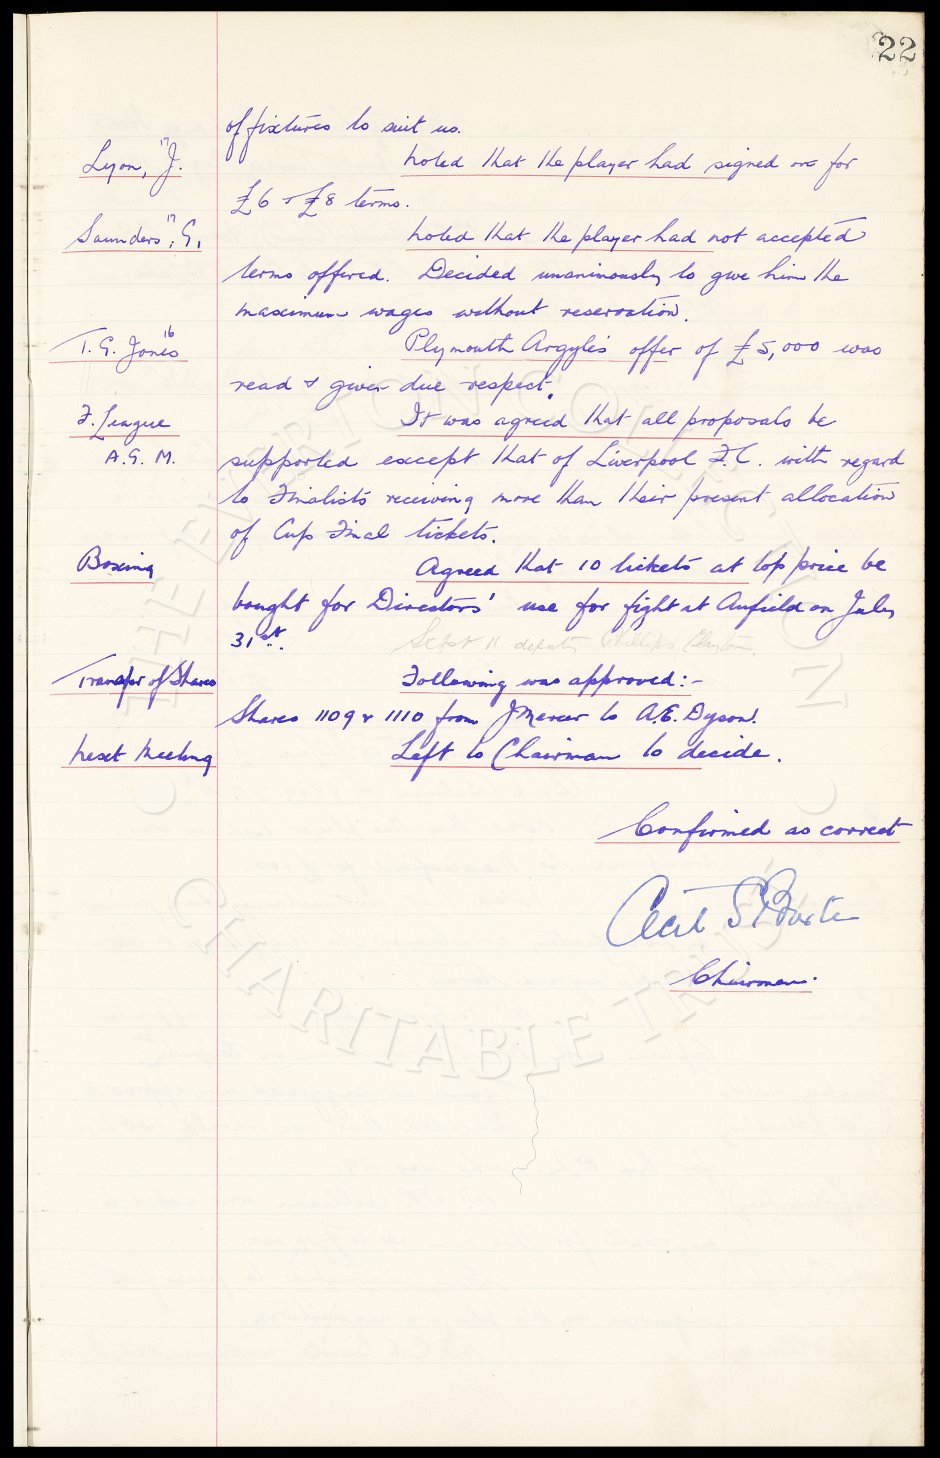 22
of fixtures to suit us.
Lyon, J. 17 Noted that the player had signed on for
£6 & £8 terms.
Saunders, G. 17 Noted that the player had not accepted
terms offered. Decided unanimously to give him the
maximum wages without reservation.
T. G. Jones 16 Plymouth Argyle's offer of £5,000 was
read & given due respect.
F. League It was agreed that all proposals be
A.G.M. supported except that of Liverpool F.C. with regard
to Finalists receiving more than their present allocation
of Cup Final tickets.
Boxing Agreed that 10 tickets at top price be
bought for Directors' use for fight at Anfield on July
31st. Sept 11 deputy Phillips Clayton.
Transfer of Shares Following was approved:-
Shares 1109 & 1110 from J Mercer to A.E. Dyson.
Next Meeting Left to Chairman to decide.
Confirmed as correct
Cecil S Baxter
Chairman.
THE EVERTON COLLECTION
CHARITABLE TRUST